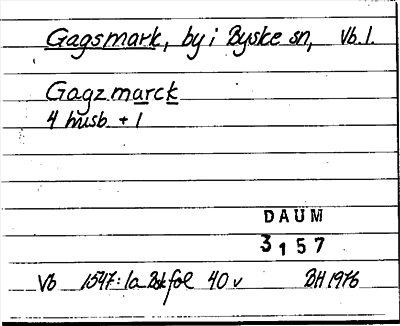 Gagsmark, by i Byske sn, Vb. l.
Gagzmarck
4 husb. + 1
DAUM
3157
Vb 1547: 1a Bsk fol 40 v BH 1976